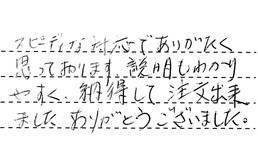 スピーディな対応でありがたく
思っております。説明もわかり
やすく、納得して注文出来
ました。ありがとうございました。